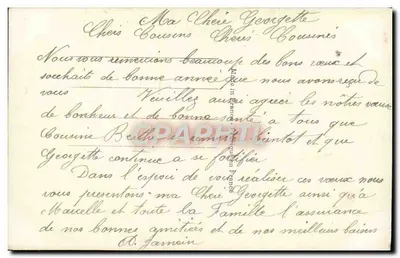 Ma Chère Georgette
Chers Cousins Chères Cousines
Nous vous remercions beaucoup des bons vœux et
souhaits de bonne année que nous avons reçu de
vous Veuillez aussi agréer les nôtres vœux
de bonheur et de bonne santé a tous que
Cousine Berthe se remette bientot et que
Georgette continue a se fortifier
Dans l'espoir de vous réaliser ces vœux nous
vous presentons ma Chère Georgette ainsi qu'a
Marcelle et toute la Famille l'assurance
de nos bonnes amitiées et de nos meilleurs baisers
A. Jamain